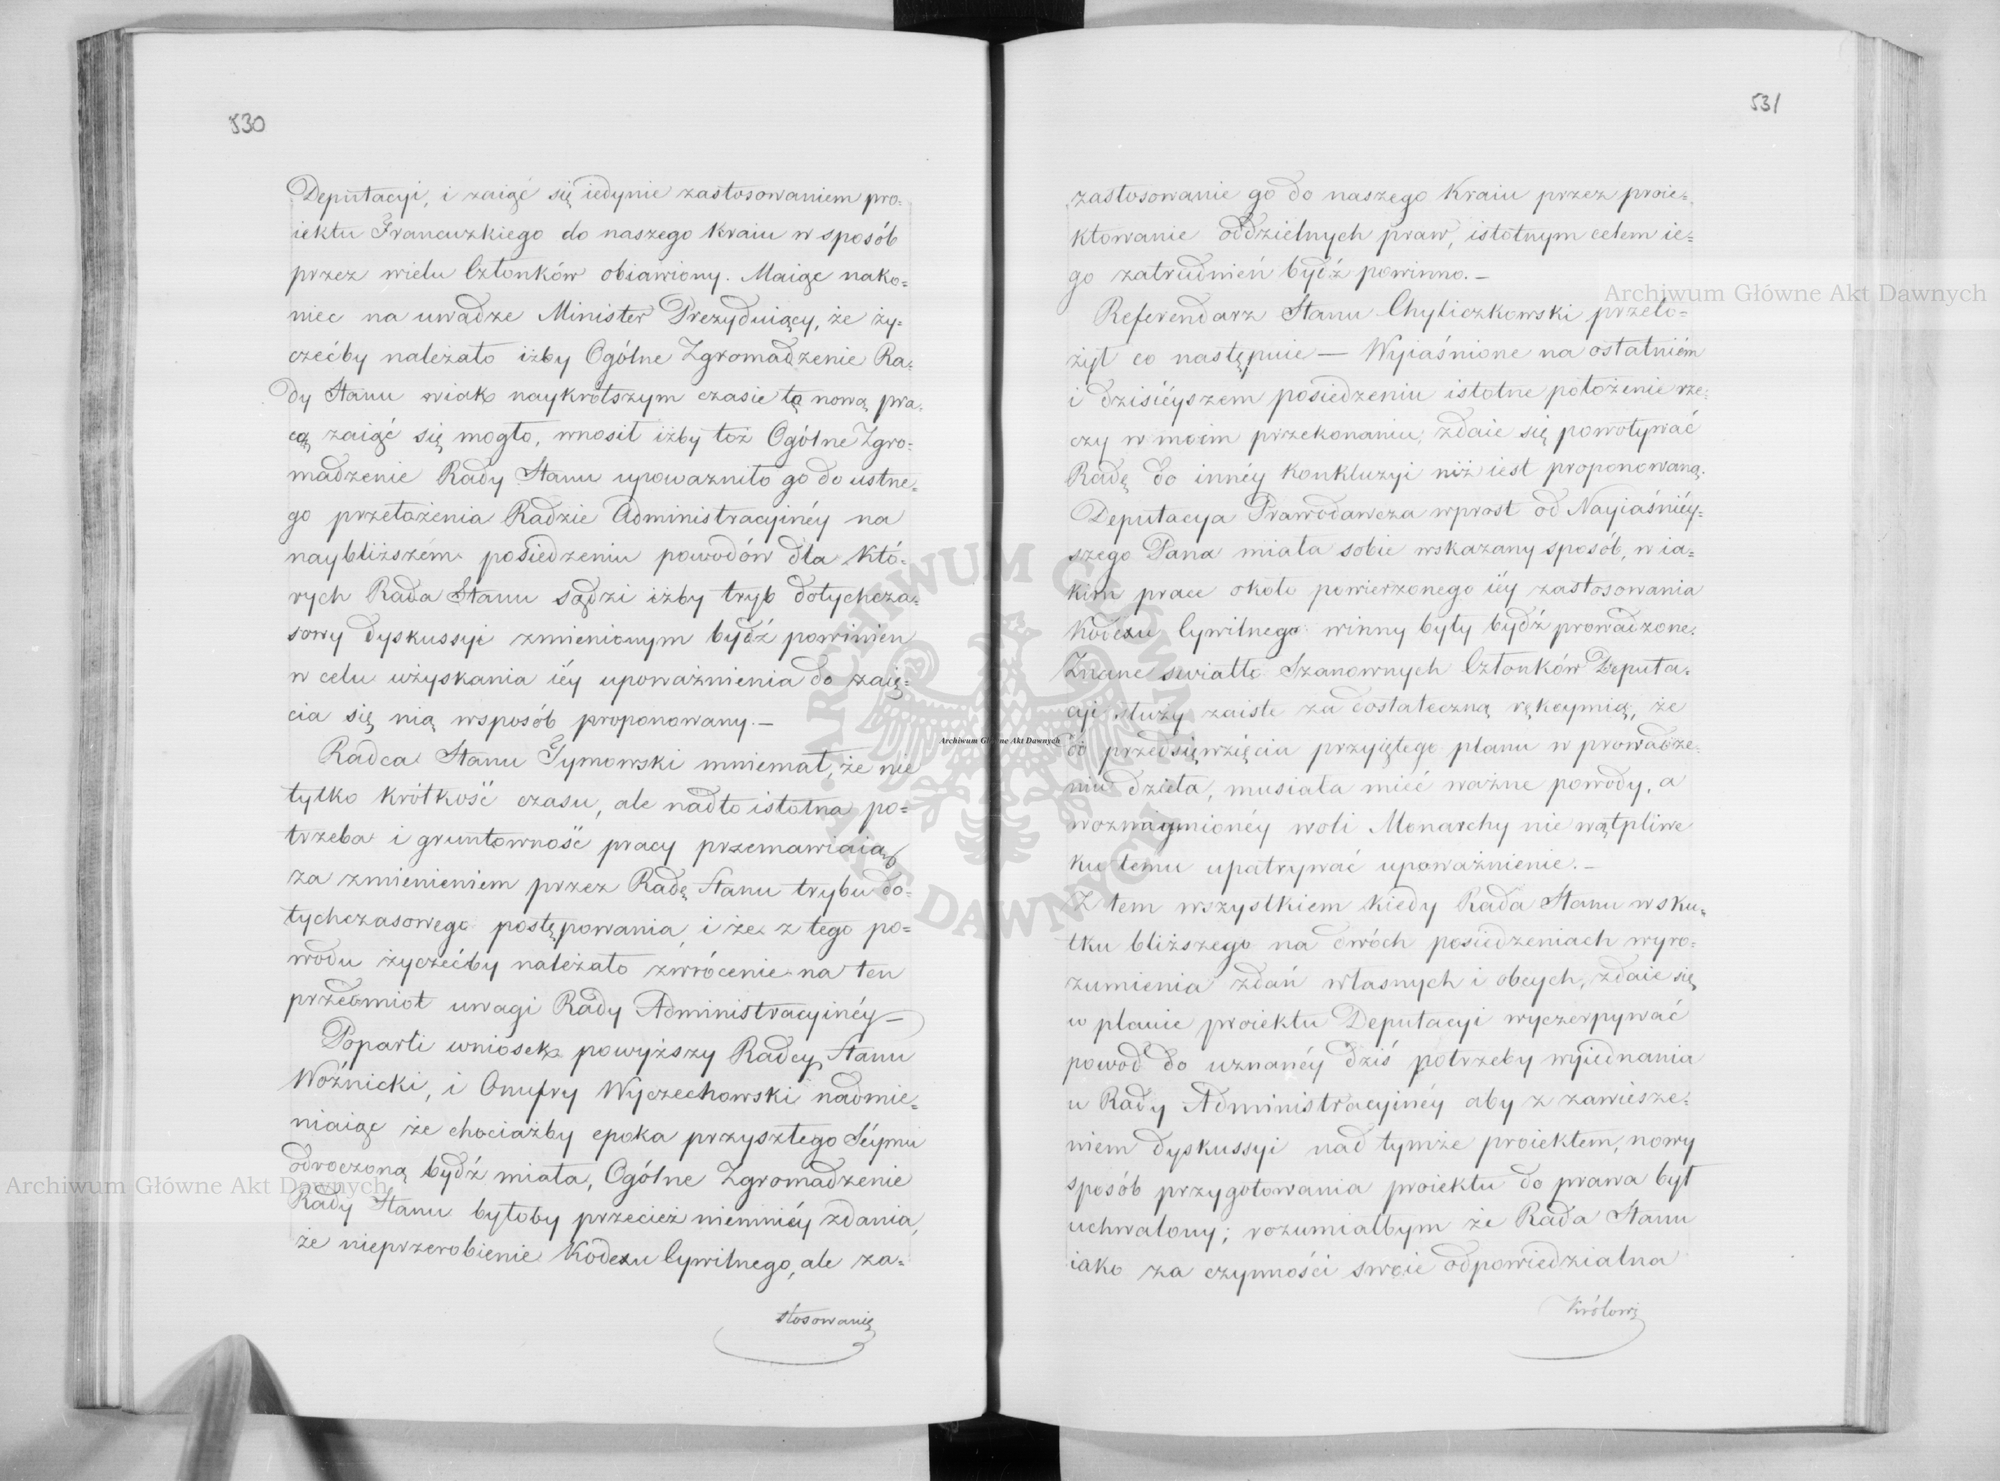 530
Deputacyi, i zaiąć się iedynie zastosowaniem pro-
iektu Francuzkiego do naszego kraiu w sposób
przez wielu Członków obiawiony. Maiąc nako=
niec na uwadze Minister Prezyduiący, że ży=
czećby należało iżby Ogólne Zgromadzenie Ra-
dy Stanu wiak naykrótszym czasie tą nową pra-
cą zaiąć się mogło, wnosił iżby toż Ogólne Zgro-
madzenie Rady Stanu upoważniło go do ustne-
go przełożenia Radzie Administracyinéy na
naybliższém posiedzeniu powodów dla któ-
rych Rada Stanu sądzi iżby tryb dotychcza-
sowy dyskussyi zmienionym bydź powinien
w celu uzyskania iéy upoważnienia do zaię-
cia się nią wsposób proponowany.—
Radca Stanu Tymowski mniemał, że nie
tylko krótkość czasu, ale nadto istotna po=
trzeba i gruntowność pracy przemawiaią
za zmienieniem przez Radę Stanu trybu do-
tychczasowego postępowania, i że z tego po=
wodu życzećby należało zwrócenie na ten
przedmiot uwagi Rady Administracyinéy—
Poparli wniosek powyższy Radcy Stanu
Woźnicki, i Onufry Wyczechowski nadmie-
niaiąc że chociażby epoka przyszłego Séymu
odroczoną bydź miała, Ogólne Zgromadzenie
Rady Stanu byłoby przecież niemniéy zdania,
że nieprzerobienie Kodexu Cywilnego, ale za-
stosowanie
531
zastosowanie go do naszego kraiu przez proie-
ktowanie oddzielnych praw, istotnym celem ie=
go zatrudnień bydź powinno.—
Referendarz Stanu Chyliczkowski przeło=
żył co następuie — Wyiaśnione na ostatniém
i dzisiéyszem posiedzeniu istotne położenie rze-
czy w moim przekonaniu, zdaie się powoływać
Radę do innéy konkluzyi niż iest proponowaną.
Deputacya Prawodawcza wprost od Nayiaśniéy=
szego Pana miała sobie wskazany sposób, w ia=
kim prace około powierzonego iéy zastosowania
Kodexu Cywilnego winny były bydź prowadzone.
Znane swiatło Szanownych Członków Deputa-
cyi służy zaiste za dostateczną rękoymią, że
do przedsięwzięcia przyiętego planu w prowadze-
niu dzieła, musiała mieć ważne powody, a
woznaymionéy woli Monarchy nie wątpliwe
ku temu upatrywać upoważnienie.—
Z tem wszystkiem kiedy Rada Stanu wsku-
tku bliższego na dwóch posiedzeniach wyro-
zumienia zdań własnych i obcych, zdaie się
w planie proiektu Deputacyi wyczerpywać
powod do uznanéy dziś potrzeby wyiednania
u Rady Administracyinéy aby z zawiesze-
niem dyskussyi nad tymże proiektem, nowy
sposób przygotowania proiektu do prawa był
uchwalony; rozumiałbym że Rada Stanu
iako za czynności swoie odpowiedzialna
Królowi
Archiwum Główne Akt Dawnych
Archiwum Główne Akt Dawnych
Archiwum Główne Akt Dawnych
ARCHIWUM GŁÓWNE AKT DAWNYCH